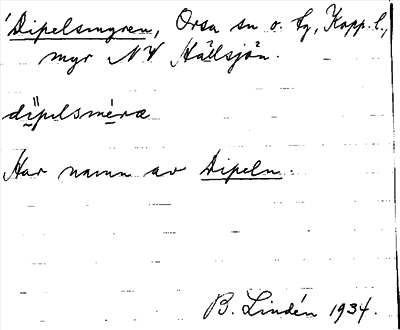 'Dipelsmyren, Orsa sn o. tg, Kopp. l.,
myr NV Hällsjön.
dipelsméræ
Har namn av Dipeln.
B. Lindén 1934.